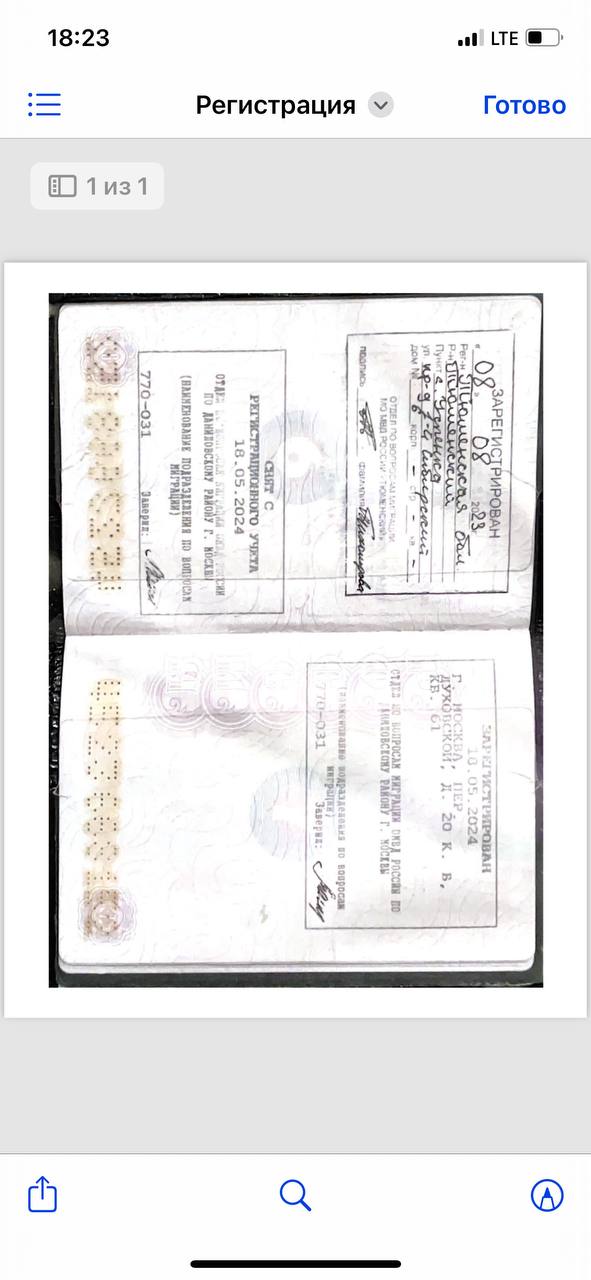 18:23
LTE
Регистрация
Готово
1 из 1
ЗАРЕГИСТРИРОВАН
" 08 " 08 2023
Рег-н Тюменская обл
Р-н Тюменский
Пункт с. Успенка
ул. пр-д 1-й Сибирский
дом № 6 корп. – стр – кв –
ОТДЕЛ ПО ВОПРОСАМ МИГРАЦИИ
МО МВД РОССИИ «ТЮМЕНСКИЙ»
подпись фамилия
СНЯТ С
РЕГИСТРАЦИОННОГО УЧЕТА
18.05.2024
ОТДЕЛ
ПО ДАНИЛОВСКОМУ РАЙОНУ Г. МОСКВЫ
(НАИМЕНОВАНИЕ ПОДРАЗДЕЛЕНИЯ ПО ВОПРОСАМ
МИГРАЦИИ)
770-031 Заверил:
ЗАРЕГИСТРИРОВАН
18.05.2024
Г. МОСКВА, ПЕР.
ДУХОВСКОЙ, Д. 20 К. В,
КВ. 61
ОТДЕЛ ПО ВОПРОСАМ МИГРАЦИИ ОМВД РОССИИ ПО
ДАНИЛОВСКОМУ РАЙОНУ Г. МОСКВЫ
(наименование подразделения по вопросам
миграции)
770-031 Заверил: